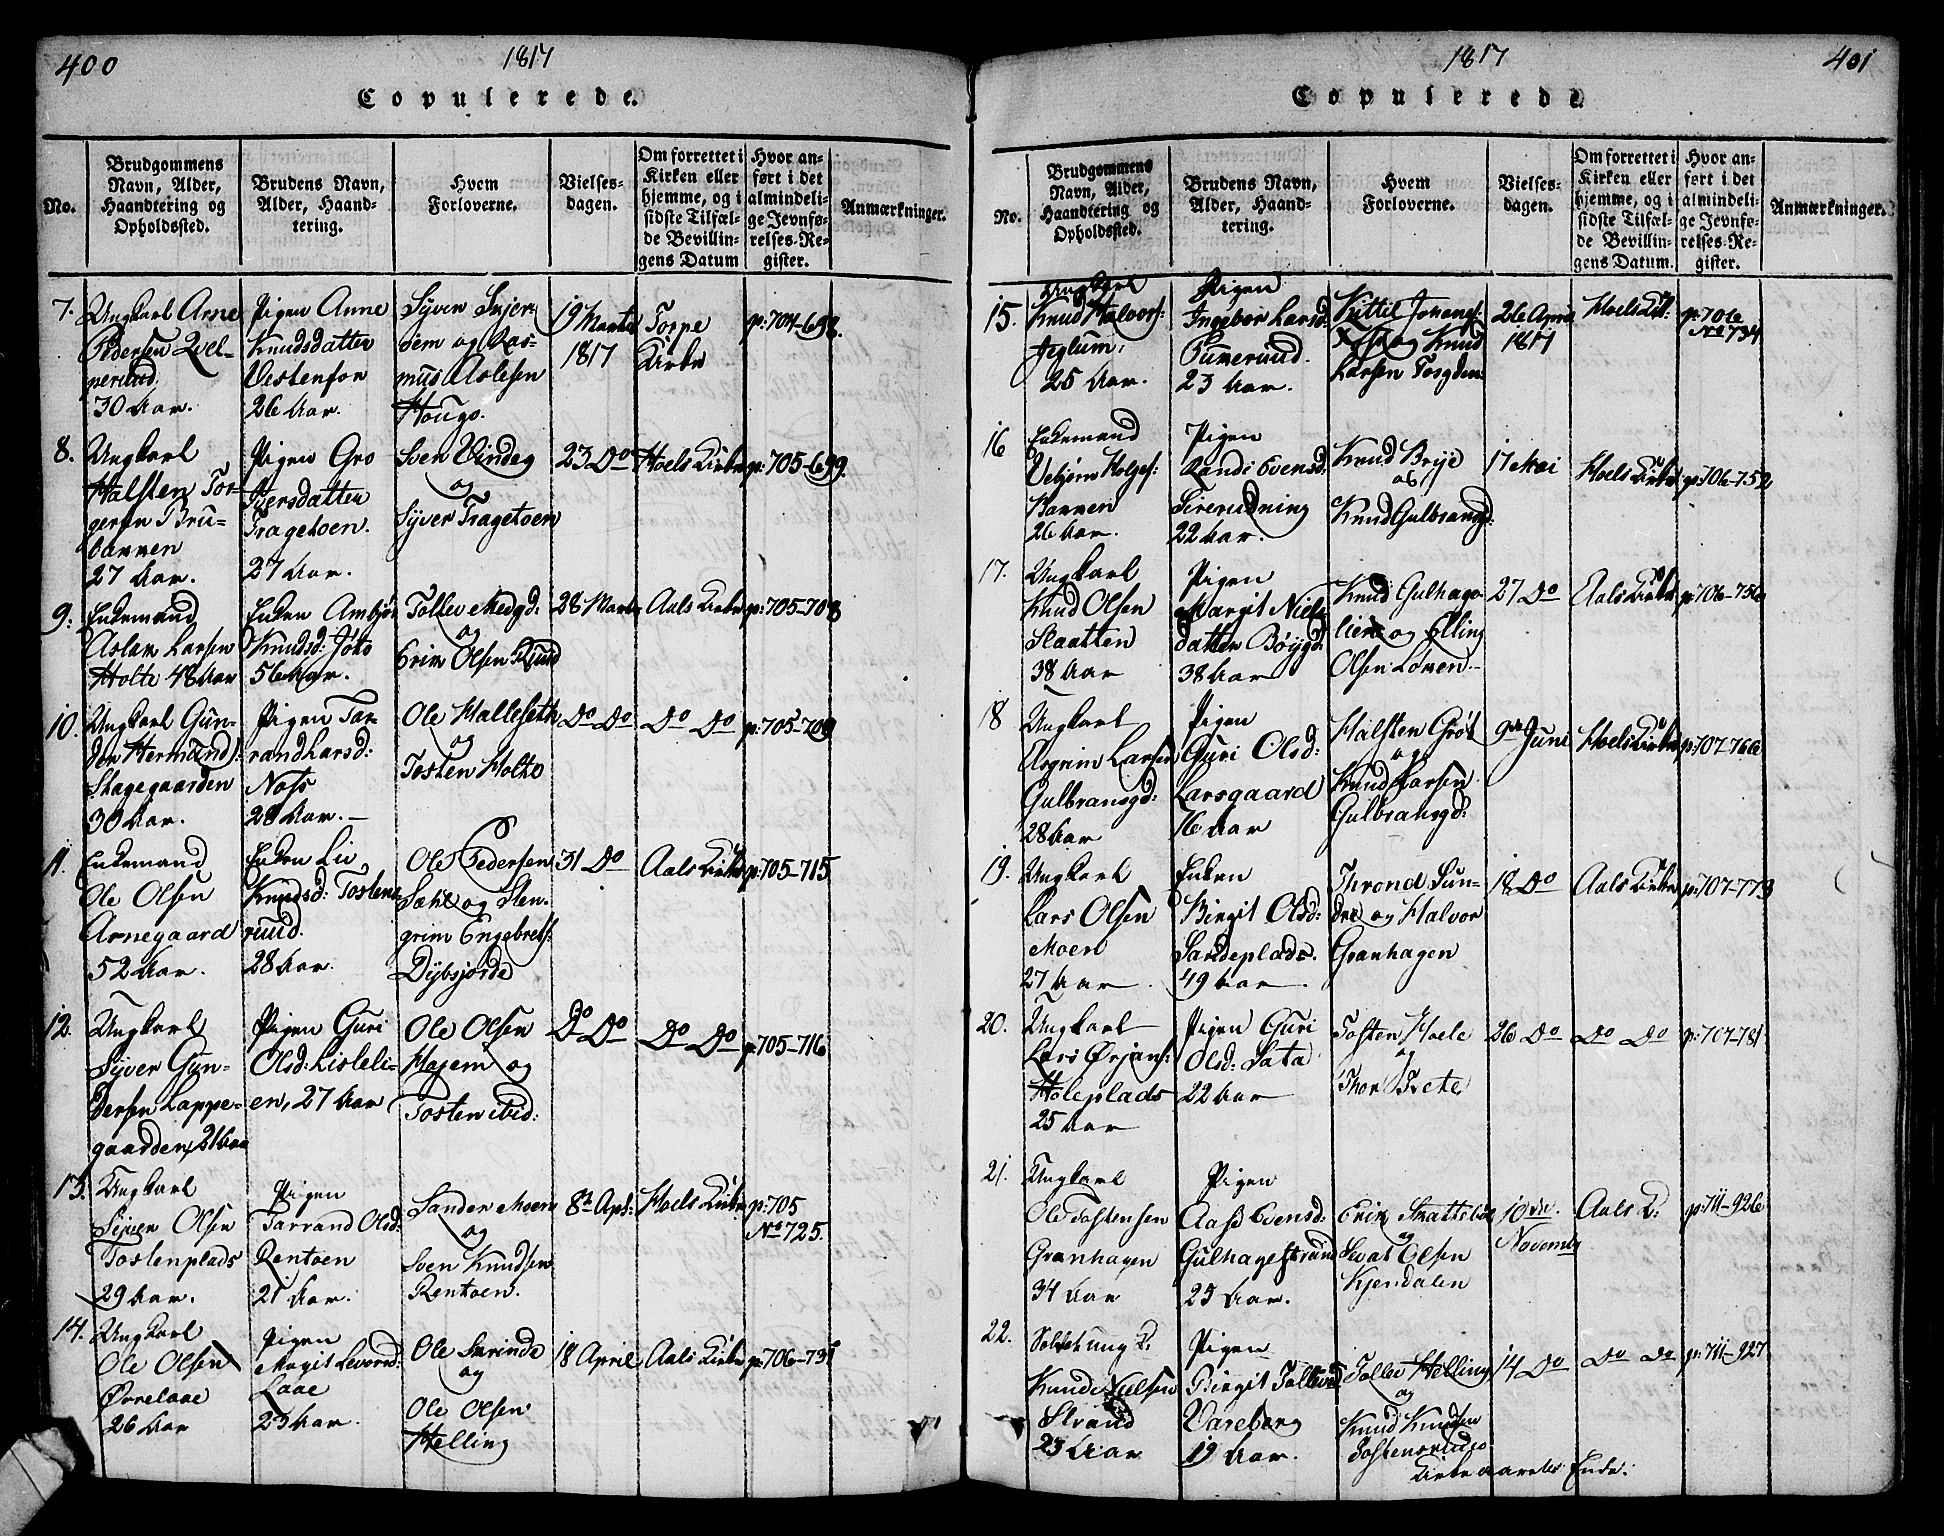 400
1817
Copulerede.
No.
Brudgommens
Navn, Alder,
Haandtering og
Opholdssted.
Brudens Navn,
Alder, Haand-
tering.
Hvem
Forloverne.
Vielses-
dagen.
Om forrettet i
Kirken eller
hjemme, og i
sidste Tilfæl-
de Bevillin-
gens Datum
Hvor an-
ført i det
almindeli-
ge Jevnfø-
relses-Re-
gister.
Anmærkninger.
7.
Ungkarl Arne
Pedersen
30 Aar.
Pigen Anne
Knudsdatter
Vestenfor
26 Aar.
Syver Skjer-
dem og Ras-
mus Aslesen
Hougo.
19 Marts
1817
Torpe
Kirke
p: 704-698.
8.
Ungkarl
Halsten Tor-
gersen Bru-
barnen
27 Aar.
Pigen Gro
Iversdatter
Tragetoen.
27 Aar.
Sven Vindeg
og
Syver Tragetoen
23 Do
Hoels Kirke
p: 705-699.
9.
Enkemand
Aslak Larsen
Holte 48 Aar
Enken Ambjør
Knudsd: Joto
56 Aar.
Tollev Medgd:
og
Grim Olsen Ruud
28 Marts
Aals Kirke
p: 705-708
10.
Ungkarl Gun-
der Hermands:
Skagegaarden
30 Aar.
Pigen Tar-
rand Larsd:
Noss
28 Aar.
Ole Halleseth
og
Tosten Holto
Do Do
Do Do
p: 705-709
11.
Enkemand
Ole Olsen
Arnegaard
52 Aar.
Enken Liv
Knudsd: Tostens
ruud.
28 Aar.
Ole Pedersen
Sæhl og Sten-
grim Engebrets:
Dybsjorde
31 Do
Aals Kirke
p: 705-715
12.
Ungkarl
Syver Gun-
dersen Lappe-
gaarden, 21 Aar
Pigen Guri
Olsd: Lisleli-
en, 27 Aar
Ole Olsen
Hagem og
Tosten ibid:
Do Do
Do Do
p: 705-716
13.
Ungkarl
Syver Olsen
Tostenplads
29 Aar.
Pigen
Tarrand Olsd:
Rentoen
21 Aar.
Sander Moen
og
Sven Knudsen
Rentoen.
8de Apl:
Hoels Kirke
p: 705
No 725.
14.
Ungkarl
Ole Olsen
Øvrelaae
26 Aar
Pigen
Margit Levord:
Laae
23 Aar.
Ole Skrinde
og
Ole Olsen
Helling
18 April
Aals Kirke
p: 706-731
1817
401
Copulerede.
No.
Brudgommens
Navn, Alder,
Haandtering og
Opholdssted.
Brudens Navn,
Alder, Haand-
tering.
Hvem
Forloverne.
Vielses-
dagen.
Om forrettet i
Kirken eller
hjemme, og i
sidste Tilfæl-
de Bevillin-
gens Datum.
Hvor an-
ført i det
almindeli-
ge Jevnfø-
relses-Re-
gister.
Anmærkninger.
15.
Ungkarl
Knud Halvors:
Jeglum,
25 Aar.
Pigen
Ingebor Larsd:
23 Aar.
Kittil
og Knud
Larsen Torgden:
26 April
1817
Hoels Kk:
p: 706
No 734
16
Enkemand
Vebjørn Holges:
Barnen
26 Aar.
Pigen
Randi Evensd:
22 Aar.
Knud Brye
og
Knud Gulbransgd:
17 Mai
Hoels Kirke
p: 706-752
17.
Ungkarl
Knud Olsen
Slaatten
38 Aar
Pigen
Margit Niels
datter Bøygd:
38 Aar.
Knud Gulhage-
lien og Elling
Olsen Løken
27 Do
Aals Kirke
p: 706-756
18
Ungkarl
Asgrim Larsen
Gulbransgd:
28 Aar
Pigen
Guri Olsd:
Larsgaard
16 Aar
Halsten Grøt
og
Knud Larsen
Gulbransgd:
9de Juni
Hoels Kirke
p: 707-766
19.
Ungkarl
Lars Olsen
Moen
27 Aar.
Enken
Birgit Olsd:
Sandeplads.
49 Aar.
Thrond Sun-
dre og Halvor
Granhagen
18 Do
Aals Kirke
p: 707-773
20.
Ungkarl
Lars Ørjans:
Holeplads
25 Aar
Pigen Guri
Olsd: Sata
22 Aar
Tosten Hoele
og
Thor Trete
26 Do
Do Do
p: 707-781
21.
Ungkarl
Ole Tostensen
Granhagen
34 Aar
Pigen
Aase Evensd:
Gulhagestrand
25 Aar.
Erik Skattebøl
og
Sevat Olsen
Kjendalen
10de
Novembr
Aals K:
p: 711-926
22.
Soldat ung K.
Knud Nielsen
Strand
23 Aar
Pigen
Birgit Tollevsd
Vareberg
19 Aar.
Tollev Helling
og
Knud Knudsen
Tostensruud
14 Do
Do Do
p: 711-927
Kirke aarets Ende.